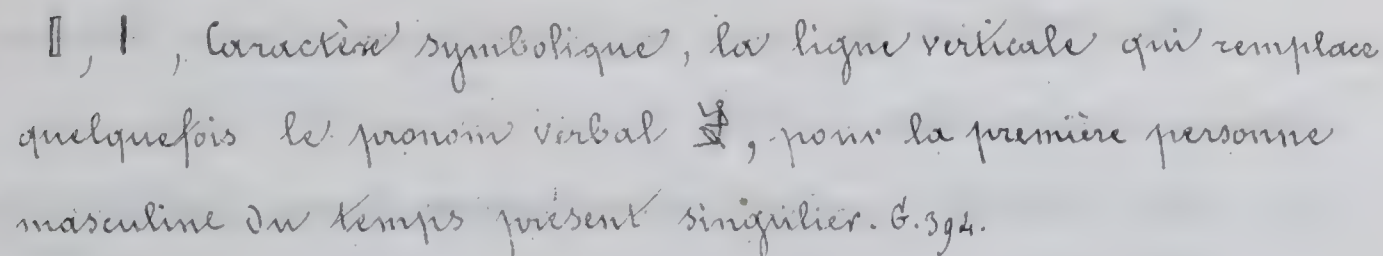 , , Caractère symbolique, la ligne verticale qui remplace
quelquefois le pronom verbal , pour la première personne
masculine du temps présent singulier. G. 394.